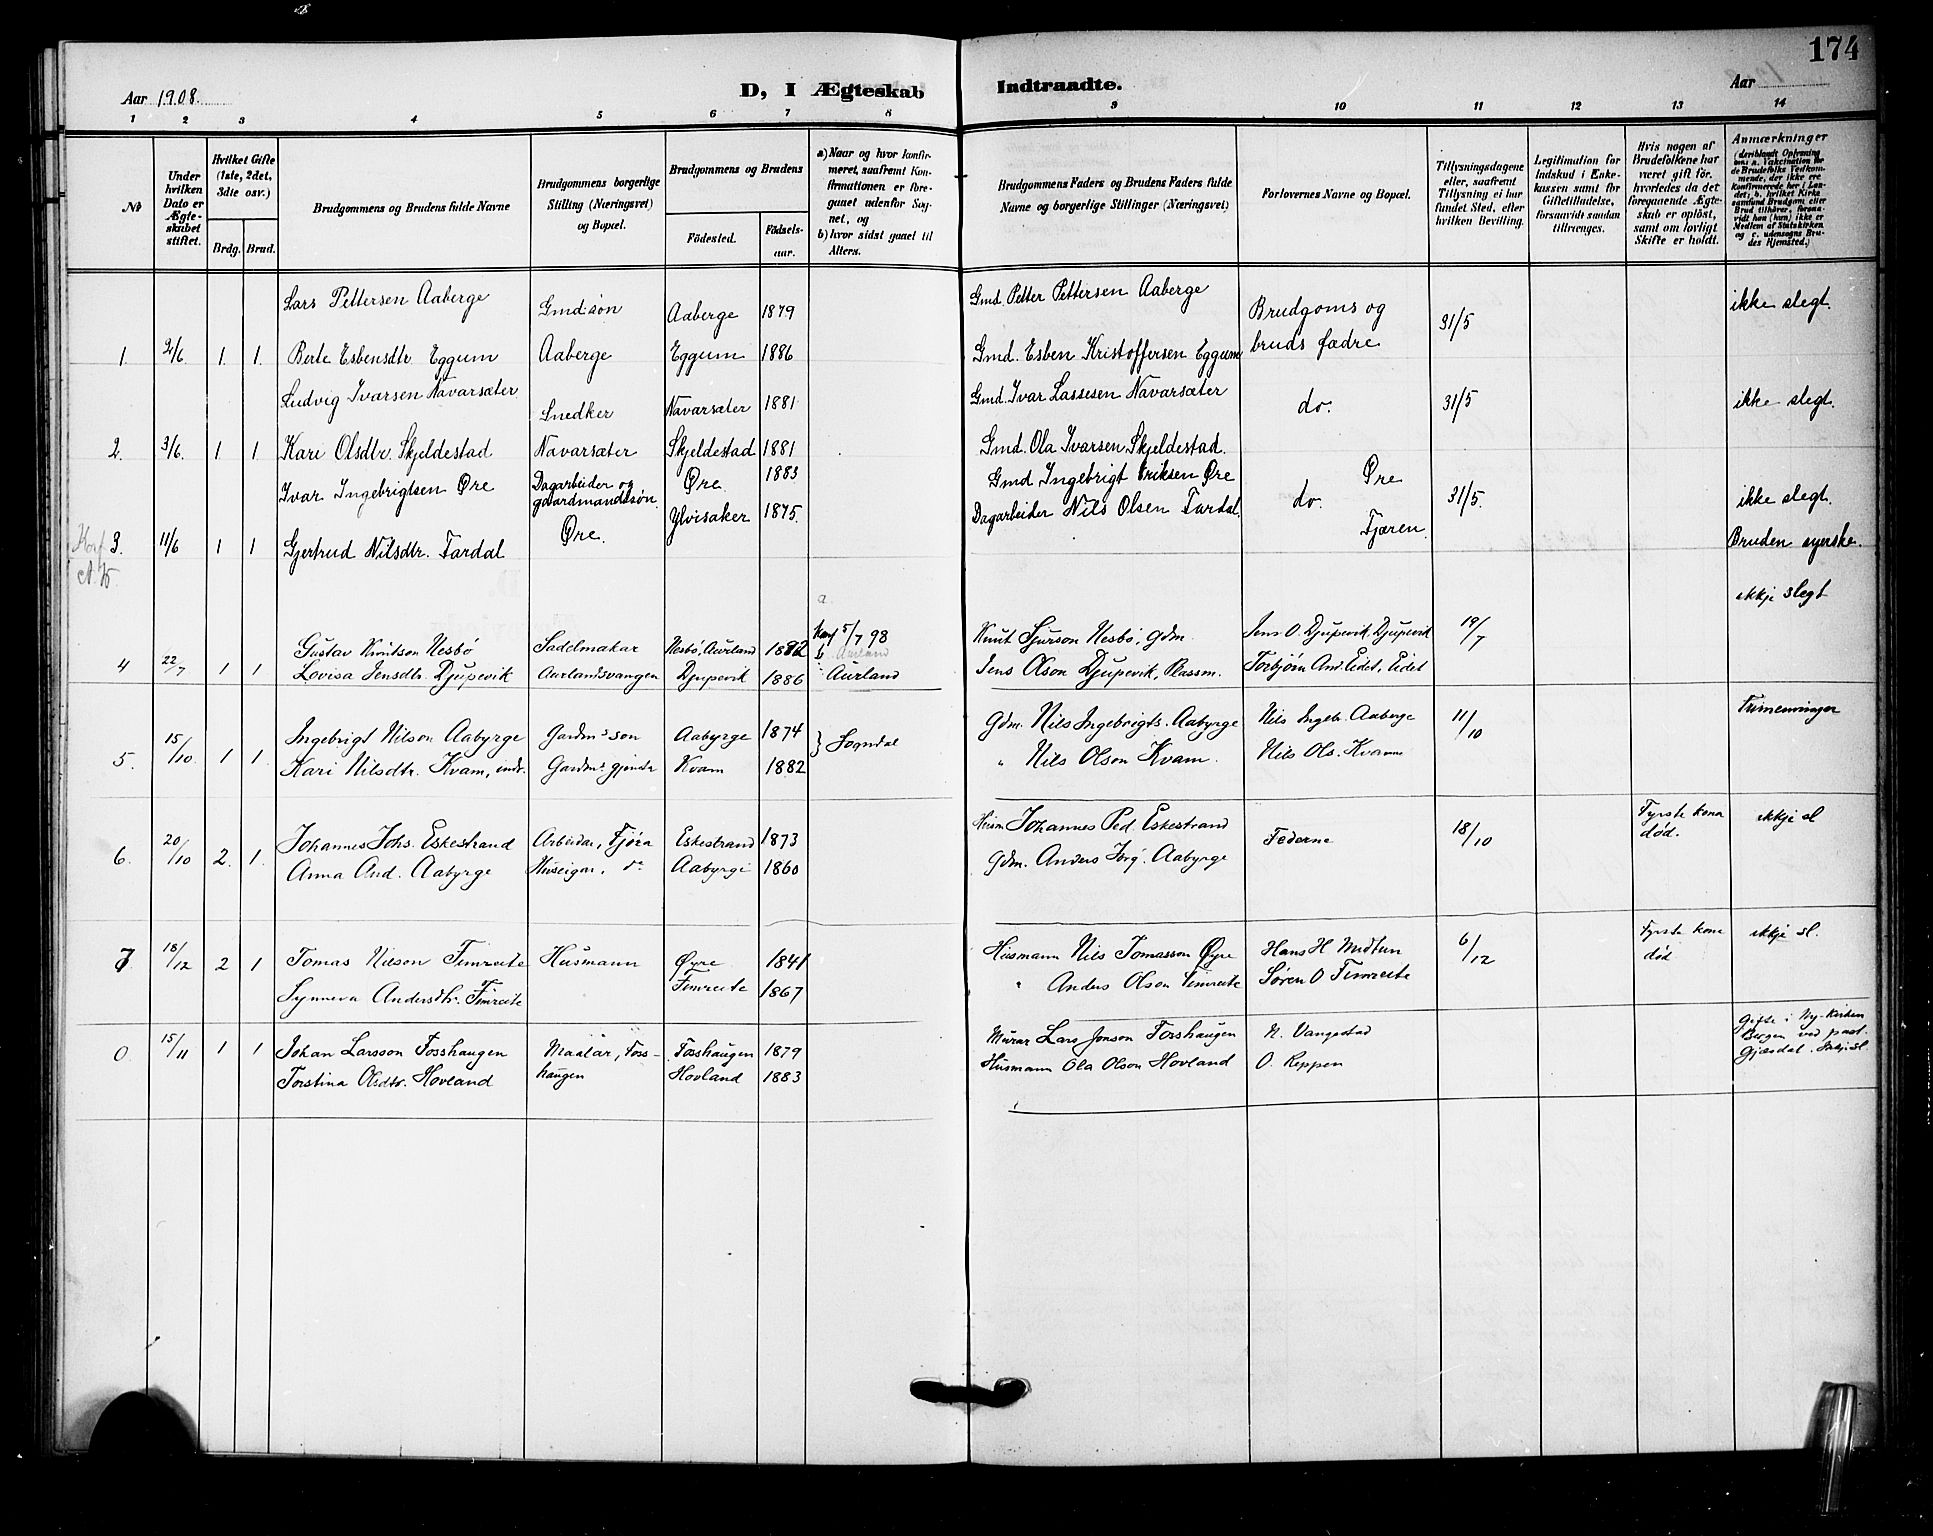 174
Aar 1908.
D, I Ægteskab Indtraadte.
Aar
1 2 3 4 5 6 7 8 9 10 11 12 13 14
№
Under hvilken Dato er Ægteskabet stiftet.
Hvilket Gifte (1ste, 2det, 3die osv.)
Brdg. Brud.
Brudgommens og Brudens fulde Navne
Brudgommens borgerlige Stilling (Næringsvei) og Bopæl.
Brudgommens og Brudens
Födested. Födsels-aar.
a) Naar og hvor konfirmeret, saafremt Konfirmationen er foregaaet udenfor Sognet, og
b) hvor sidst gaaet til Alters.
Brudgommens Faders og Brudens Faders fulde Navne og borgerlige Stillinger (Næringsvei)
Forlovernes Navne og Bopæl.
Tillysningsdagene eller, saafremt Tillysning ei har fundet Sted, efter hvilken Bevilling.
Legitimation for Indskud i Enkekassen samt for Giftetilladelse, forsaavidt saadan tiltrænges.
Hvis nogen af Brudefolkene har været gift för, hvorledes da det foregaaende Ægteskab er oplöst, samt om lovligt Skifte er holdt.
Anmærkninger
(deriblandt Oplysning om: a. Vakcination for de Brudefolks Vedkommende, der ikke ere konfirmerede her i Landet; b. hvilket Kirkesamfund Brudgom eller Brud tilhører, forsaavidt han (hun) ikke er Medlem af Statskirken og c. udensogns Brudes Hjemsted.)
Lars Pettersen Aaberge Gmd.søn Aaberge 1879 Gmd. Petter Pettersen Aaberge Brudgoms og 31/5 ikke slegt.
1. 2/6 1. 1. Berte Esbensdtr. Eggum Aaberge Eggum 1886 Gmd. Esben Kristoffersen Eggum bruds fædre
Ludvig Ivarsen Navarsæter Snedker Navarsæter 1881 Gmd. Ivar Lassesen Navarsæter do. 31/5 ikke slegt.
2. 3/6. 1 1. Kari Olsdtr. Skjeldestad Navarsæter Skjeldestad 1881 Gmd. Ola Ivarsen Skjeldestad.
Ivar Ingebrigtsen Øre Dagarbeider og gaardmandssøn. Øre 1883 Gmd Ingebrigt Eriksen Øre do. Øre 31/5. ikke slegt.
3. 11/6 1 1 Gjertrud Nilsdtr. Fardal Øre. Ylvisaker 1875. Dagarbeider Nils Olsen Fardal. Fjæren. Bruden syerske.
a. ikkje slegt
Gustav Knutson Nesbö Sadelmakar Nesbö, Aurland 1882 Konf 5/7 98 Knut Sjurson Nesbö, gdm. Jens O. Djupevik, Djupevik 19/7
b Aurland
4 22/7 1 1 Lovisa Jensdtr. Djupevik Aurlandsvangen Djupevik 1886 Aurland Jens Olson Djupevik, Plassm. Torbjörn And. Eidet, Eidet
Ingebrigt Nilson Aabyrge Gardms son Aabyrge 1874 } Sogndal Gdm. Nils Ingebrigts. Aabyrge Nils Ingebr. Aaberge 11/10 Trimenninger
5. 15/10. 1 1. Kari Nilsdtr. Kvam, indr. Gardms gjenta Kvam 1882 " Nils Olson Kvam. Nils Ols. Kvamme
Johannes Johs. Eskestrand Arbeidar, Fjøra Eskestrand 1873 Husm Johannes Ped. Eskestrand Federne 18/10 Fyrste kona død. ikkje sl
6. 20/10 2. 1. Anna And. Aabyrge Huseigar, do Aabyrge 1860 Gdm. Anders Jørg. Aabyrge
7 18/12 2 1 Tomas Nilson Fimreite Husmann Øyre 1841 Husmann Nils Tomasson Øyre Hans H Midtun 6/12 Fyrste kone død ikkje sl.
Synneva Andersdtr. Fimreite Fimreite 1867 " Anders Olson Fimreite Søren O Fimreite
0. 15/11 1 1 Johan Larsson Fosshaugen Maalar, Foss-haugen Fosshaugen 1879 Murar Lars Jonson Fosshaugen N. Vangestad Gifte i Ny-kirken Bergen ved past. Gjæsdal. Ikkje sl
Torstina Olsdtr. Hovland Hovland 1883 Husmann Ola Olson Hovland O. Reppen